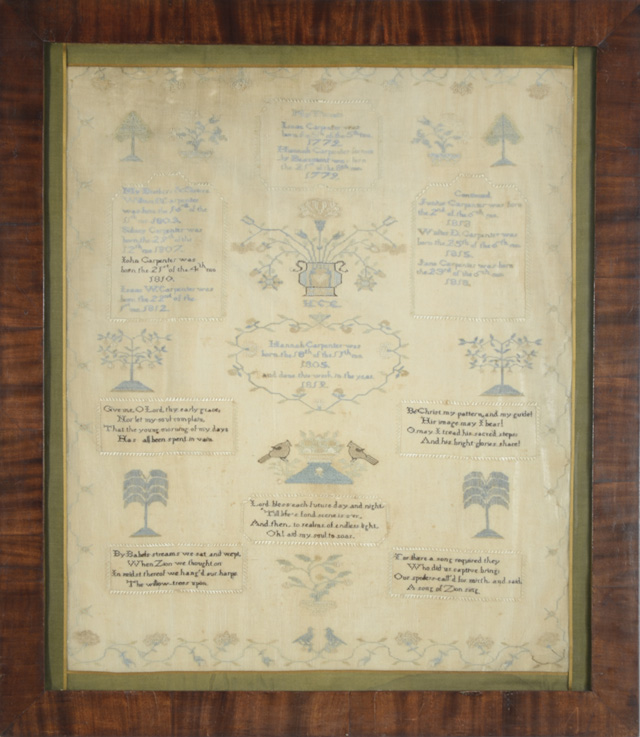 Isaac Carpenter was
born the of the 5th mo
1773.
Hannah Carpenter
was born
the 21st of the 8th mo
1779.
was born the of the
mo 1803.
Sidney Carpenter was
born the of the
12th mo 1807.
John Carpenter was
born the 21st of the mo
1810.
Isaac W. Carpenter was
born the 22nd of the
mo 1812.
Continued
Carpenter was born
the 2nd of the 6th mo
Walter D. Carpenter was
born the 25th of the 6th mo
1815.
Jane Carpenter was born
the 23rd of the mo
1818.
H C
Hannah Carpenter was
born the 18th of the 11th mo
1805.
and done this work in the year
1819.
Give me, O Lord, thy early grace,
Nor let my soul complain,
That the young morning of my days
Has all been spent in vain.
Be Christ my pattern, and my guide!
His image may I bear!
O may I tread his sacred steps;
And his bright glories share!
Lord bless each future day and night,
Till life's fond scene is o'er,
And then, to realms of endless light,
Oh! aid my soul to soar.
By Babels streams we sat and wept,
When Zion we thought on
In midst thereof we hang'd our harps
The willow trees upon.
For there a song required they
Who did us captive bring:
Our spoilers call'd for mirth, and said,
A song of Zion sing.